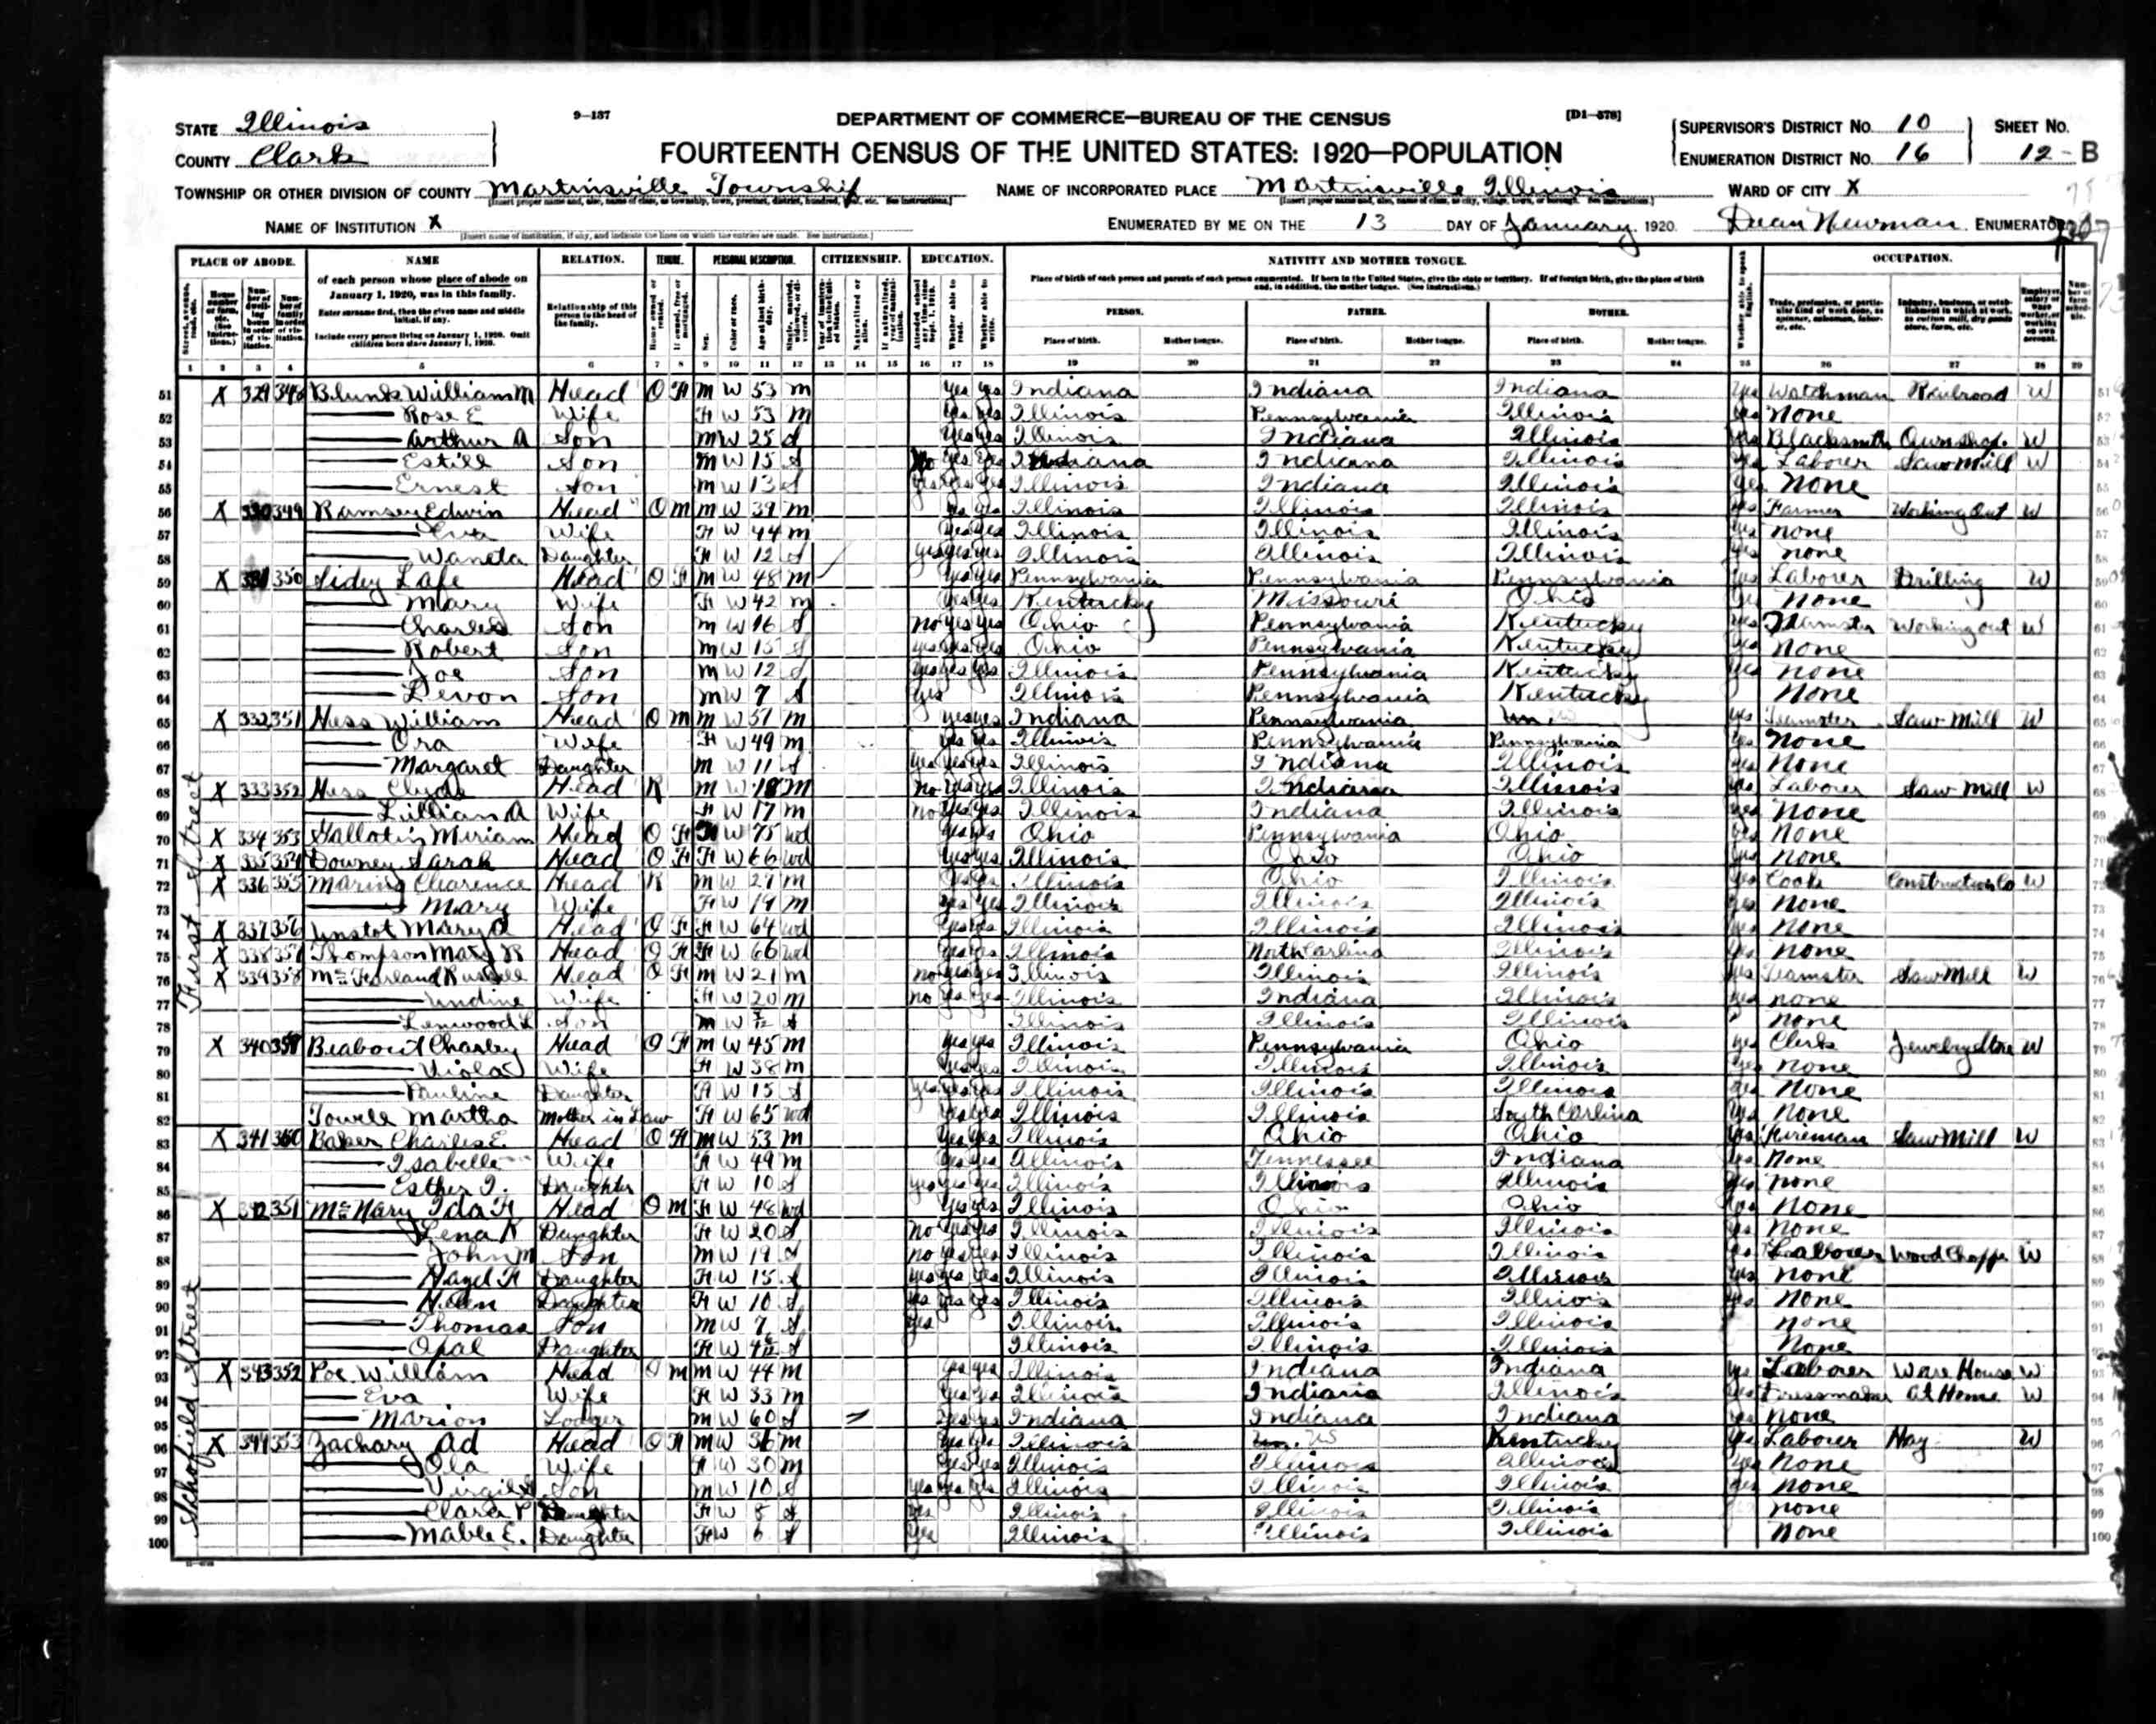 STATE Illinois
COUNTY Clark
9—137
DEPARTMENT OF COMMERCE—BUREAU OF THE CENSUS
[D1—578]
FOURTEENTH CENSUS OF THE UNITED STATES: 1920—POPULATION
SUPERVISOR'S DISTRICT No. 10
ENUMERATION DISTRICT No. 16
SHEET No. 12 - B
TOWNSHIP OR OTHER DIVISION OF COUNTY Martinsville Township
NAME OF INCORPORATED PLACE Martinsville Illinois
WARD OF CITY X
NAME OF INSTITUTION X
ENUMERATED BY ME ON THE 13 DAY OF January, 1920. Dean Newman ENUMERATOR
PLACE OF ABODE. NAME RELATION. TENURE. PERSONAL DESCRIPTION. CITIZENSHIP. EDUCATION. NATIVITY AND MOTHER TONGUE. OCCUPATION.
of each person whose place of abode on January 1, 1920, was in this family.
Enter surname first, then the given name and middle initial, if any.
Include every person living on January 1, 1920. Omit children born since January 1, 1920.
Relationship of this person to the head of the family.
Place of birth of each person and parents of each person enumerated. If born in the United States, give the state or territory. If of foreign birth, give the place of birth and, in addition, the mother tongue. (See instructions.)
PERSON. FATHER. MOTHER.
Place of birth. Mother tongue. Place of birth. Mother tongue. Place of birth. Mother tongue.
1 2 3 4 5 6 7 8 9 10 11 12 13 14 15 16 17 18 19 20 21 22 23 24 25 26 27 28 29
First Street
51 X 329 348 William M Head O F M W 53 M Yes Yes Indiana Indiana Indiana Yes Watchman Railroad W
52 Rose E Wife F W 53 M Yes Yes Illinois Pennsylvania Illinois Yes None
53 Arthur A Son M W 25 S Yes Yes Illinois Indiana Illinois Yes Blacksmith Own shop W
54 Estill Son M W 15 S No Yes Yes Indiana Indiana Illinois Yes Laborer Saw Mill W
55 Ernest Son M W 13 S Yes Yes Yes Illinois Indiana Illinois Yes None
56 X 330 349 Ramsey Edwin Head O M M W 39 M Yes Yes Illinois Illinois Illinois Yes Farmer Working Out W
57 Eva Wife F W 44 M Yes Yes Illinois Illinois Illinois Yes None
58 Waneta Daughter F W 12 S Yes Yes Yes Illinois Illinois Illinois Yes None
59 X 331 350 Sidey Lafe Head O F M W 48 M Yes Yes Pennsylvania Pennsylvania Pennsylvania Yes Laborer Drilling W
60 Mary Wife F W 42 M Yes Yes Kentucky Missouri Ohio Yes None
61 Charles Son M W 16 S No Yes Yes Ohio Pennsylvania Kentucky Yes Teamster Working out W
62 Robert Son M W 15 S Yes Yes Yes Ohio Pennsylvania Kentucky Yes None
63 Joe Son M W 12 S Yes Yes Yes Illinois Pennsylvania Kentucky Yes None
64 Devon Son M W 7 S Yes Illinois Pennsylvania Kentucky None
65 X 332 351 Hess William Head O M M W 51 M Yes Yes Indiana Pennsylvania Un. Yes Teamster Saw Mill W
66 Ora Wife F W 49 M Yes Yes Illinois Pennsylvania Pennsylvania Yes None
67 Margaret Daughter M W 11 S Yes Yes Yes Illinois Indiana Illinois Yes None
68 X 333 352 Hess Clyde Head R M W 18 M No Yes Yes Illinois Indiana Illinois Yes Laborer Saw Mill W
69 Lillian A Wife F W 17 M No Yes Yes Illinois Indiana Illinois Yes None
70 X 334 353 Gallatin Miriam Head O F F W 75 Wd Yes Yes Ohio Pennsylvania Ohio Yes None
71 X 335 354 Downey Sarah Head O F F W 66 Wd Yes Yes Illinois Ohio Ohio Yes None
72 X 336 355 Maring Clearence Head R M W 27 M Yes Yes Illinois Ohio Illinois Yes Cook Construction Co W
73 Mary Wife F W 19 M Yes Yes Illinois Illinois Illinois Yes None
74 X 337 356 Mary A Head O F F W 64 Wd Yes Yes Illinois Illinois Illinois Yes None
75 X 338 357 Thompson Mary Head O F F W 66 Wd Yes Yes Illinois North Carlina Illinois Yes None
76 X 339 358 McFarland Russell Head O F M W 21 M No Yes Yes Illinois Illinois Illinois Yes Teamster Saw Mill W
77 Undine Wife F W 20 M No Yes Yes Illinois Indiana Illinois Yes None
78 Lenwood L Son M W S Illinois Illinois Illinois None
79 X 340 359 Beabout Charley Head O F M W 45 M Yes Yes Illinois Pennsylvania Ohio Yes Clerk Jewelry Store W
80 Viola Wife F W 38 M Yes Yes Illinois Illinois Illinois Yes None
81 Pauline Daughter F W 15 S Yes Yes Yes Illinois Illinois Illinois Yes None
82 Towell Martha Mother in Law F W 65 Wd Yes Yes Illinois Illinois South Carlina Yes None
83 X 341 350 Baker Charles E. Head O F M W 53 M Yes Yes Illinois Ohio Ohio Yes Fireman Saw Mill W
84 Isabelle Wife F W 49 M Yes Yes Illinois Tennessee Indiana Yes None
85 Esther I. Daughter F W 10 S Yes Yes Yes Illinois Illinois Illinois Yes None
86 X 342 351 McNary Ida F Head O M F W 48 Wd Yes Yes Illinois Ohio Ohio Yes None
87 Lena K Daughter F W 20 S No Yes Yes Illinois Illinois Illinois Yes None
88 John M Son M W 19 S No Yes Yes Illinois Illinois Illinois Yes Laborer Wood Chopper W
Schofield Street
89 Hazel F Daughter F W 15 S Yes Yes Yes Illinois Illinois Illinois Yes None
90 Helen Daughter F W 10 S Yes Yes Yes Illinois Illinois Illinois Yes None
91 Thomas Son M W 7 S Yes Illinois Illinois Illinois None
92 Opal Daughter F W S Illinois Illinois Illinois None
93 X 343 352 Poe William Head O M M W 44 M Yes Yes Illinois Indiana Indiana Yes Laborer Ware House W
94 Eva Wife F W 33 M Yes Yes Illinois Indiana Illinois Yes Dressmaker At Home W
95 Marion Lodger M W 60 S Yes Yes Indiana Indiana Indiana Yes None
96 X 344 353 Zachary Ad Head O F M W 36 M Yes Yes Illinois Un. US Kentucky Yes Laborer Hay W
97 Ola Wife F W 30 M Yes Yes Illinois Illinois Illinois Yes None
98 Virgil Son M W 10 S Yes Yes Yes Illinois Illinois Illinois Yes None
99 Clara P Daughter F W 8 S Yes Illinois Illinois Illinois None
100 Mable E. Daughter F W 6 S Yes Illinois Illinois Illinois None